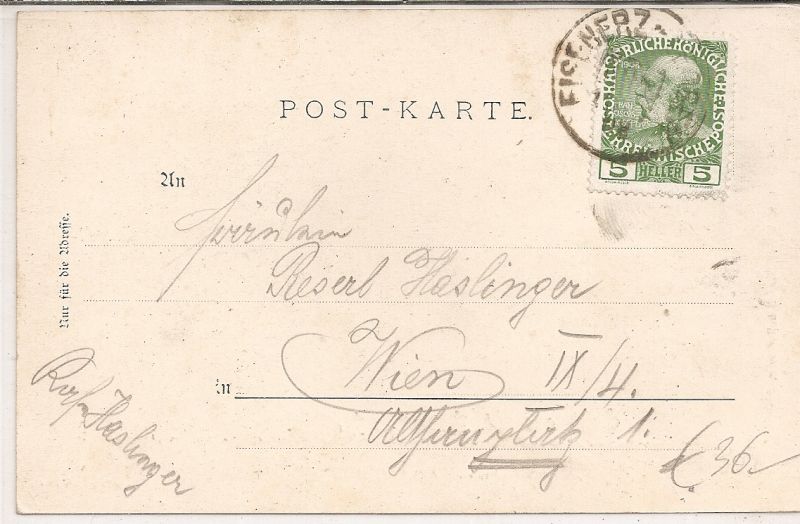 POST-KARTE.
EISENERZ
KAISERLICHEKÖNIGLICHE
ÖSTERREICHISCHEPOST
5 HELLER 5
An
Fräulein
Reserl Haslinger
in Wien IX/4.
1.
Haslinger
Nur für die Adresse.
36